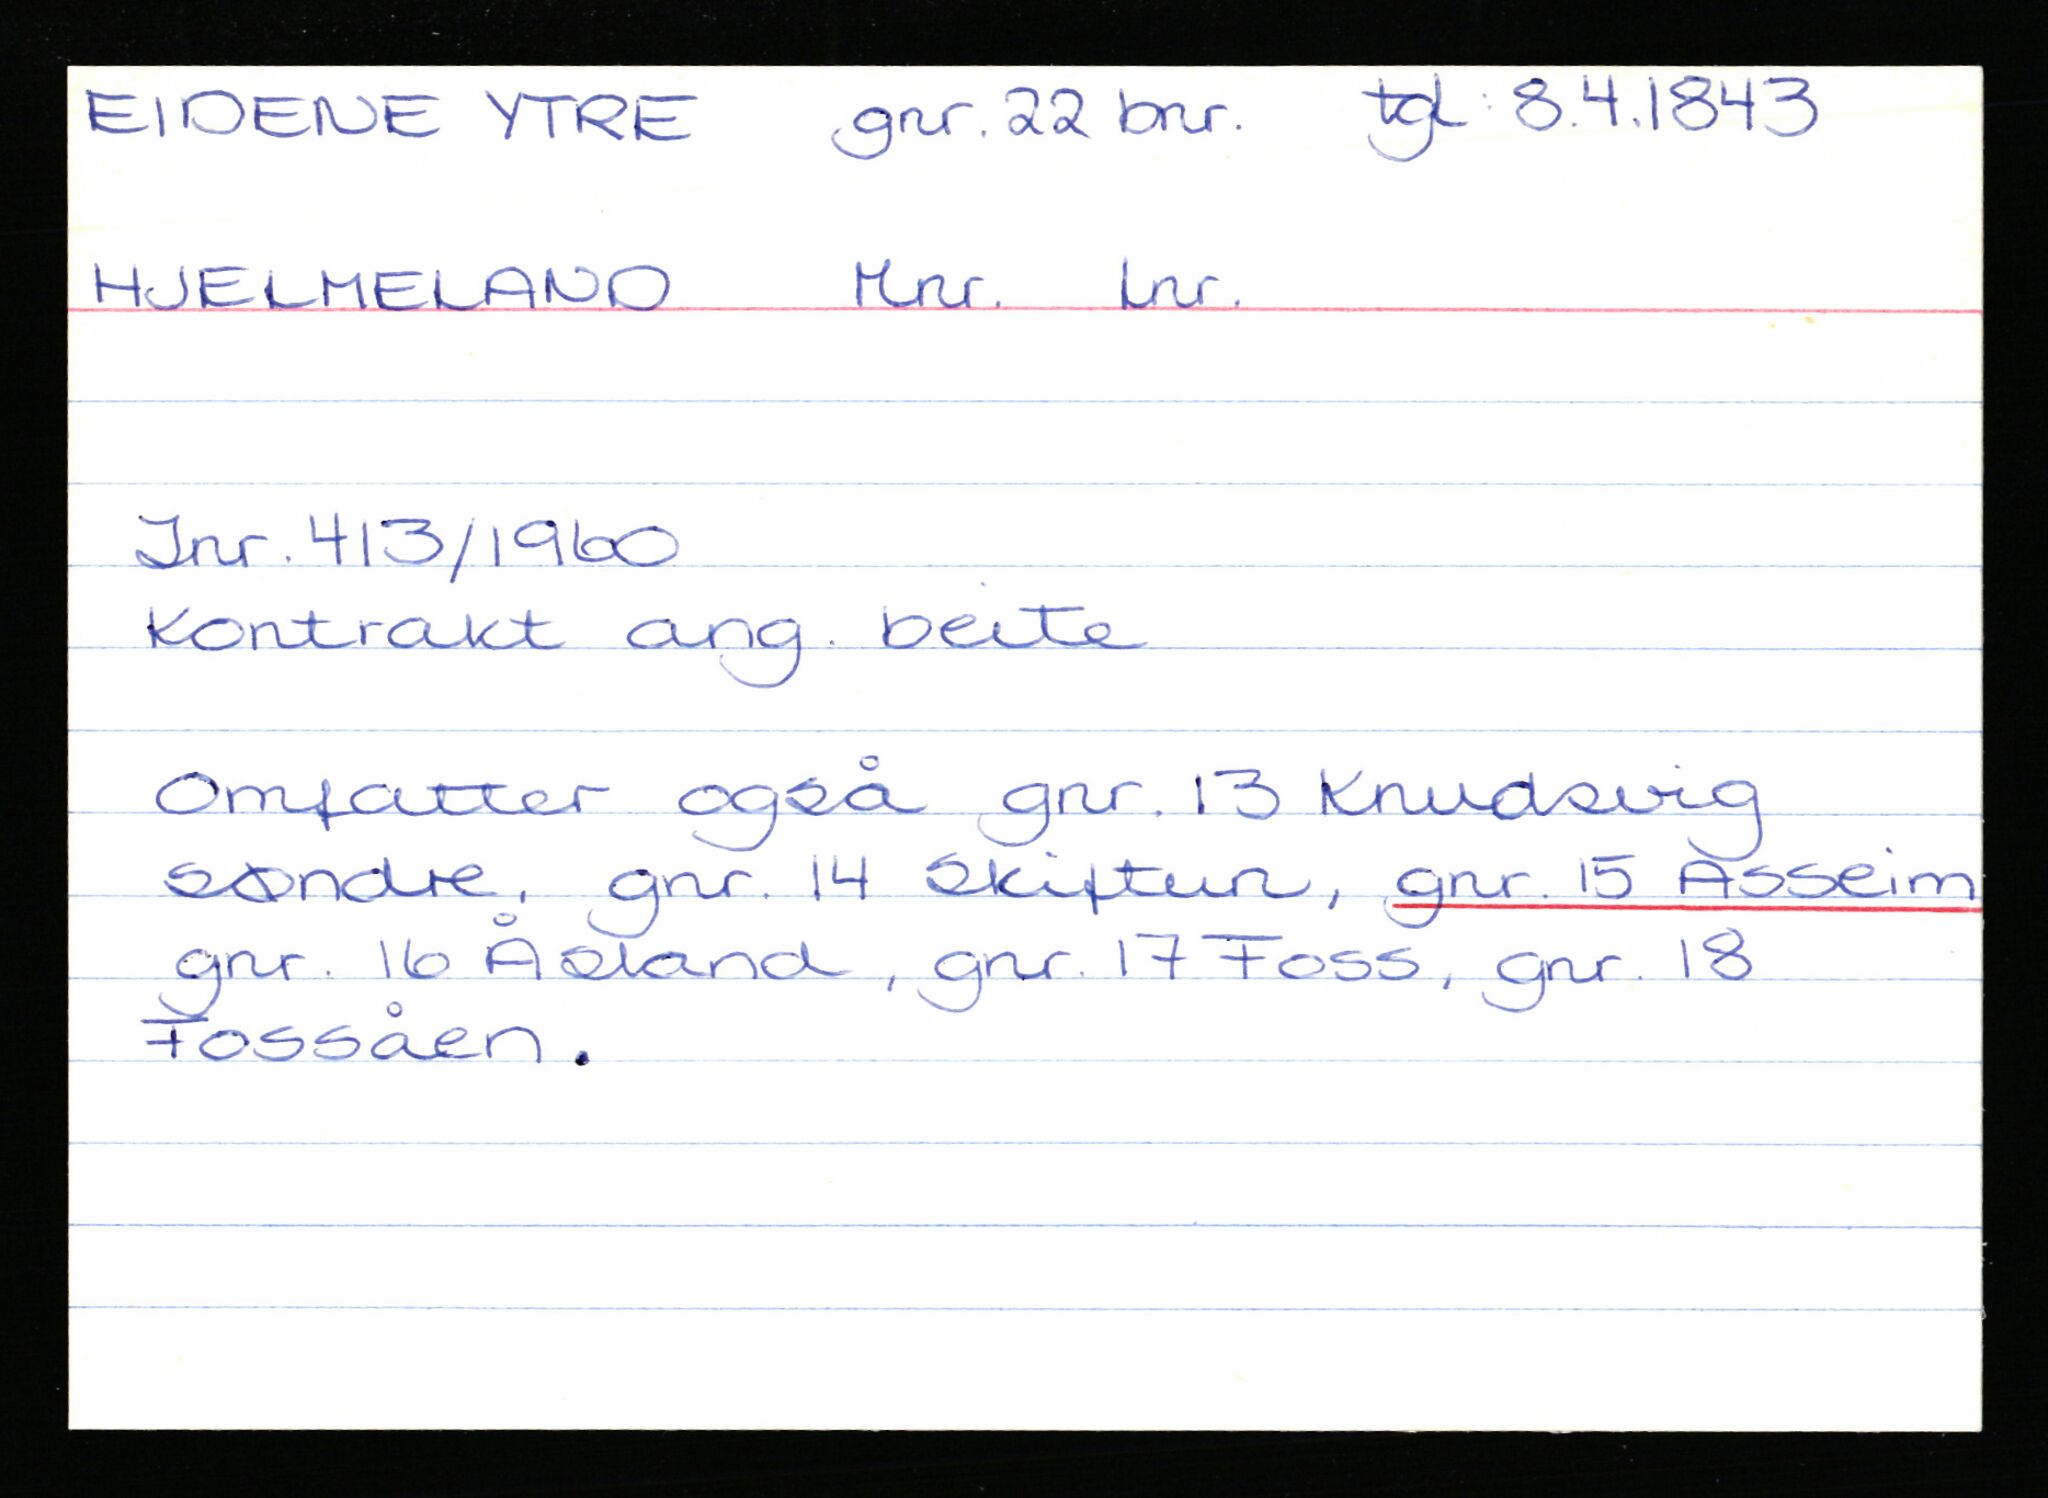 EIDENE YTRE gnr. 22 bnr. tgl: 8.4.1843
HJELMELAND Mnr. Lnr.
Jnr. 413/1960
Kontrakt ang. beite
Omfatter også gnr. 13 Knudsvig
søndre, gnr. 14 Skiftun, gnr. 15 Asseim
gnr. 16 Åsland, gnr. 17 Foss, gnr. 18
Fossåen.